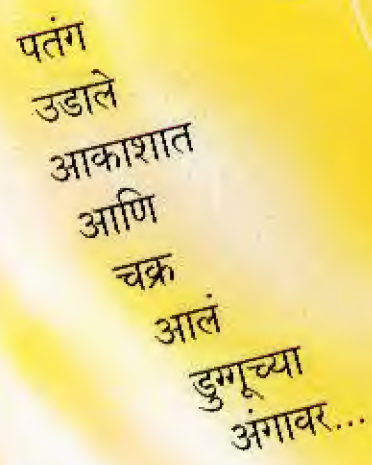 पतंग
उडाले
आकाशात
आणि
चक्र
आलं
डुग्गूच्या
अंगावर...